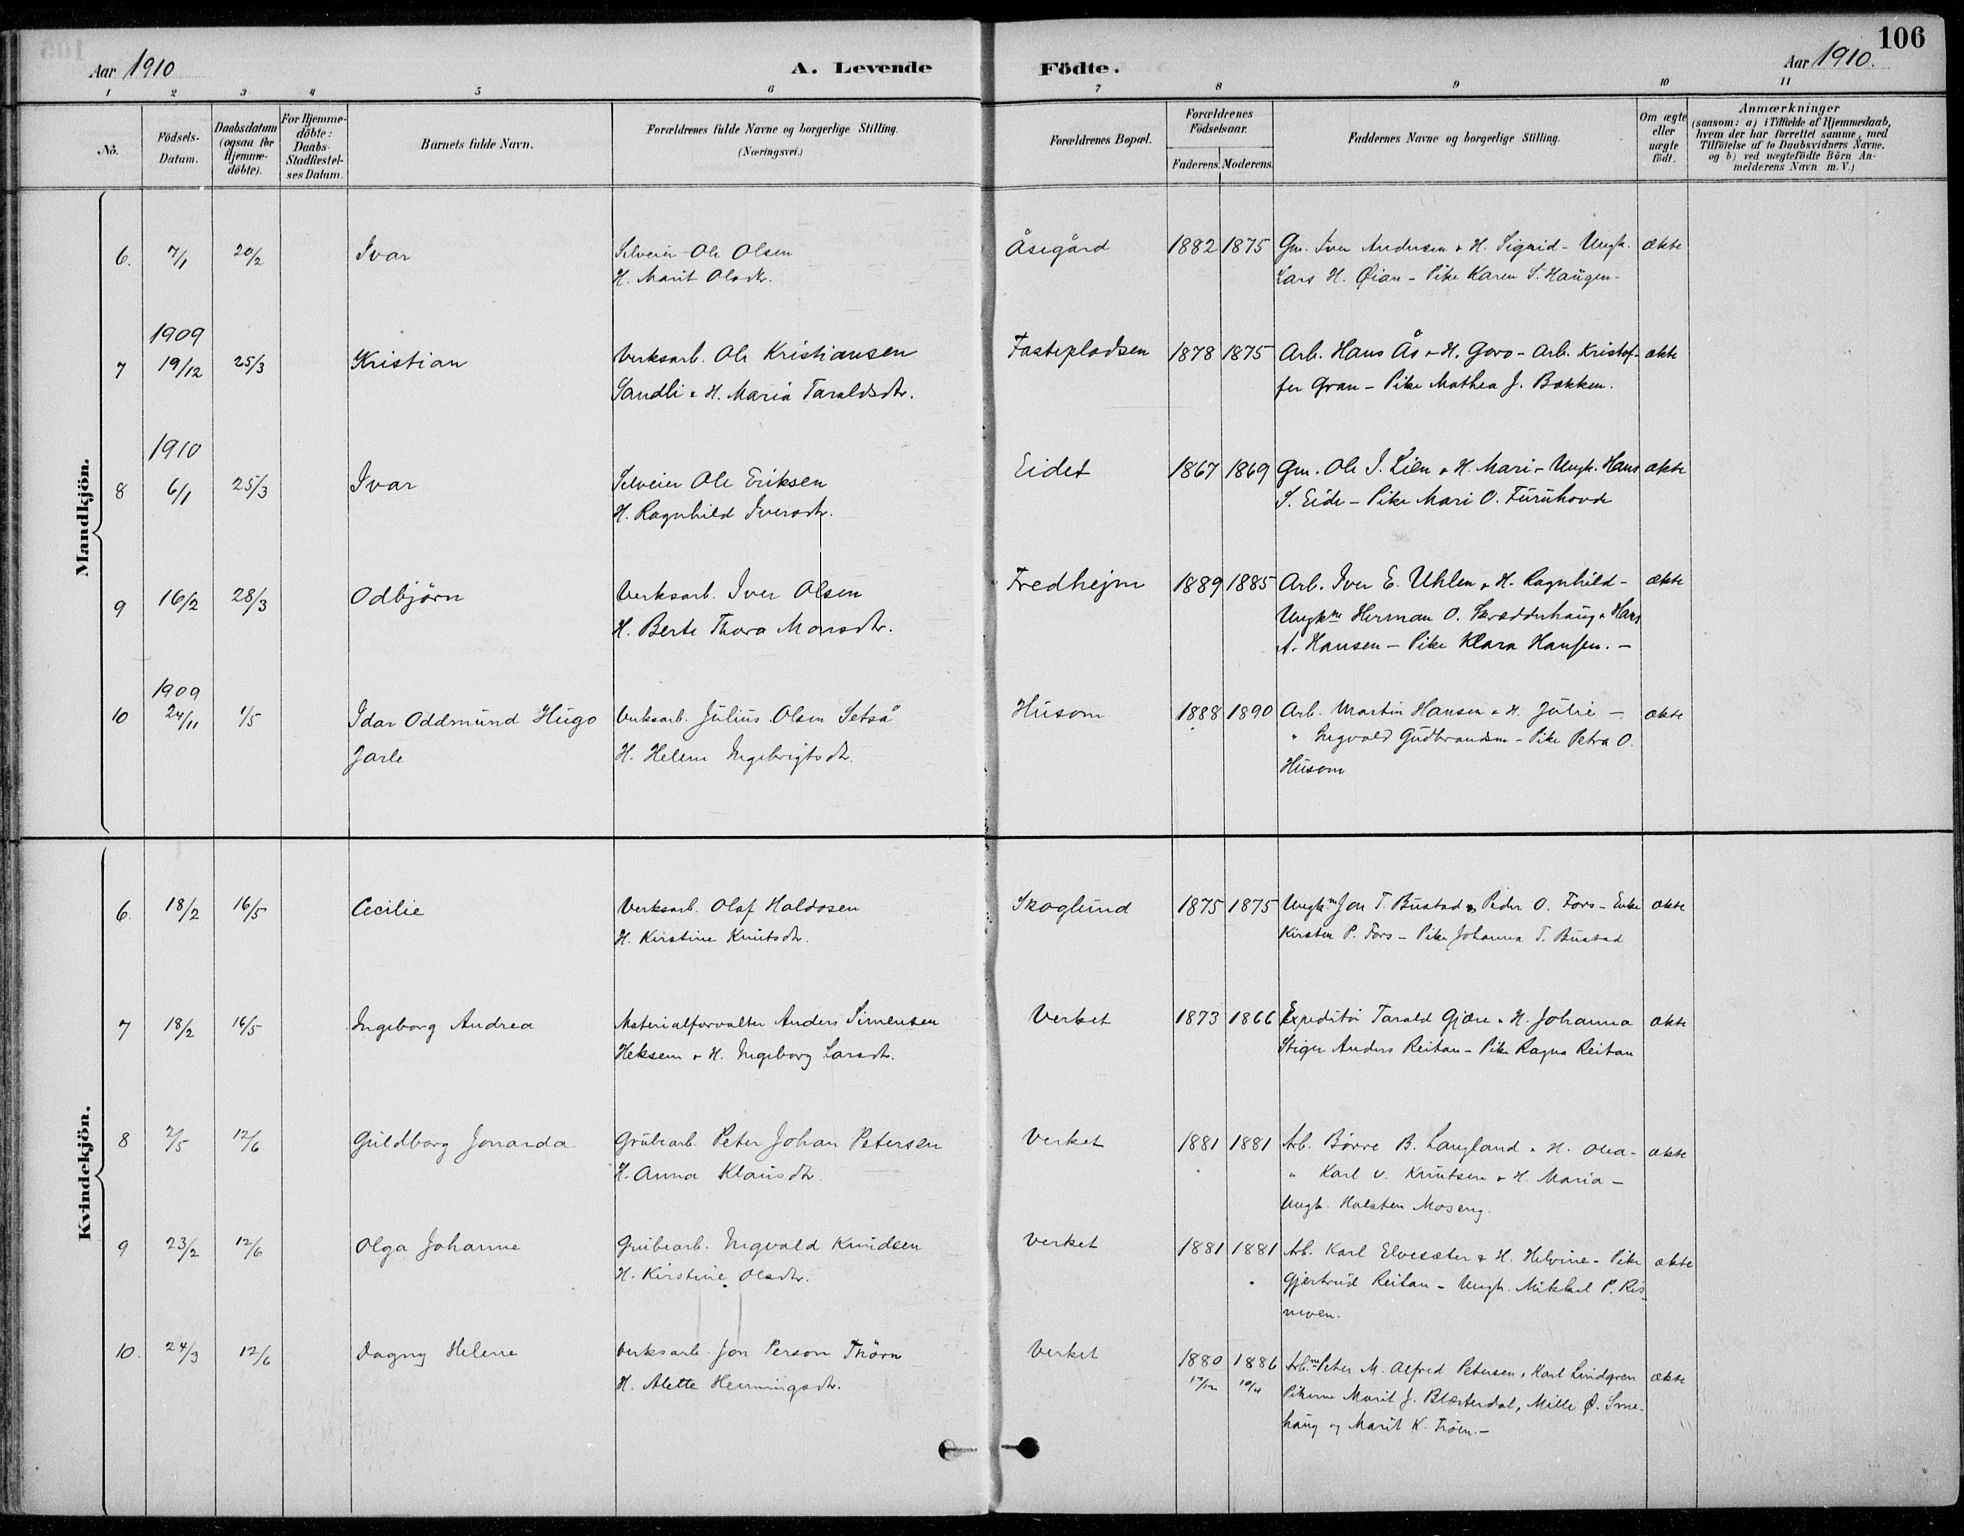 106
Aar 1910
A. Levende
Födte.
Aar 1910.
1 2 3 4 5 6 7 8 9 10 11
No.
Födsels-Datum.
Daabsdatum (ogsaa for Hjemme-döbte).
For Hjemme-döbte: Daabs-Stadfæstel-ses Datum.
Barnets fulde Navn.
Forældrenes fulde Navne og borgerlige Stilling.
(Næringsvei.)
Forældrenes Bopæl.
Forældrenes Födselsaar.
Faderens. Moderens.
Faddernes Navne og borgerlige Stilling.
Om ægte eller uægte födt.
Anmærkninger
(saasom: a) i Tilfælde af Hjemmedaab,
hvem der har forrettet samme, med
Tilföielse af to Daabsvidners Navne.
og b) ved uægtefödte Börn An-
melderens Navn m. V.)
Mandkjön.
6. 7/1 20/2 Ivar Selveier Ole Olsen Åsegård 1882 1875 Gm. Iver Andersen & H. Sigrid - Ungk. ekte
H. Marit Olsdtr. Lars H. Øian - Pike Karen S. Haugen -
1909
7 19/12 25/3 Kristian Verksarb. Ole Kristiansen Fastepladsen 1878 1875 Arb. Hans Ås & H. Goro - Arb. Kristof- ekte
Sandli & H. Maria Taraldsdtr. fer Gran - Pike Mathea J. Bakken.
1910
8 6/1 25/3 Ivar Selveier Ole Eriksen Eidet 1867 1869 Gm. Ole J. Lien & H. Mari - Ungk. Hans ekte
H. Ragnhild Iversdtr. S. Eide - Pike Mari O. Furuhovde
9 16/2 28/3 Odbjörn Verksarb. Iver Olsen Fredhejm 1889 1885 Arb. Iver E. Uhlen & H. Ragnhild - ekte
H. Berte Thora Monsdtr. Ungkne Herman O. Skredderhaug & Hans
A. Hansen - Pike Klara Hansen. -
1909
10 24/11 1/5 Idar Oddmund Hugo Verksarb. Julius Olsen Setså Husom 1888 1890 Arb. Martin Hansen & H. Julie - ekte
Jarle H. Helene Ingebrigtsdtr. " Ingvald Gudbrandsen - Pike Petra O.
Husom
Kvindekjön.
6. 18/2 16/5 Cecilie Verksarb. Olaf Haldosen Skoglund 1875 1875 Ungkm Jon T. Bustad & Peder O. Fors - Enke ekte
H. Kirstine Knutsdtr. Kirsten P. Fors - Pike Johanna T. Bustad
7 18/2 16/5 Ingeborg Andrea Materialforvalter Anders Simensen Verket 1873 1866 Expeditör Tarald Gjære & H. Johanna ekte
Heksem & H. Ingeborg Larsdtr. Stiger Anders Reitan - Pike Ragna Reitan
8 2/5 12/6 Guldborg Jonarda Grubearb. Peter Johan Petersen Verket 1881 1881 Arb. Börre B. Langland & H. Olea - ekte
H. Anna Klausdtr. " Karl V. Knutsen & H. Maria -
Ungk. Halsten Moseng.
9 23/2 12/6 Olga Johanne Grubearb. Ingvald Knudsen Verket 1881 1881 Arb. Karl Elvesæter & H. Helvine - Pike ekte
H. Kirstine Olsdtr. Gjertrud Reitan - Ungk. Mikkel P. Ris-
moen.
10. 24/3 12/6 Dagny Helene Verksarb. Jon Person Thörn Verket 1880 1886 Arb.ne Peter M. Alfred Petersen & Karl Lindgren ekte
H. Alette Henningsdtr. 17/12 10/4 Pikerne Marit J. Blæsterdal, Mille Ø. Sme-
haug og Marit K. Tröen. -